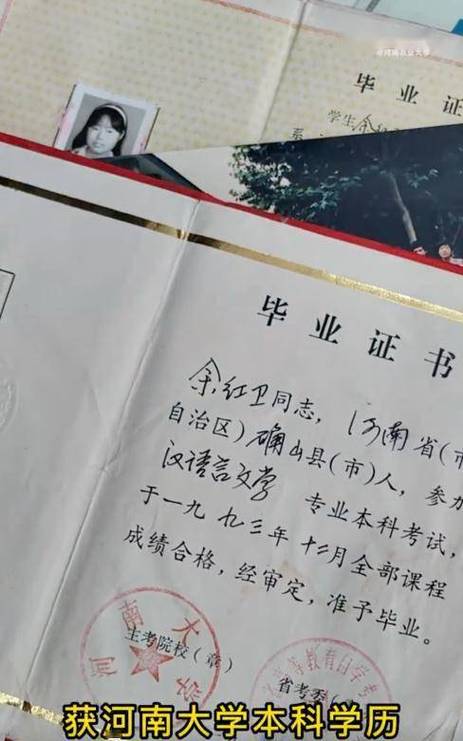 @河南农业大学
毕业证
学生余红
系
毕业证书
余红卫同志,河南省(市
自治区)确山县(市)人,参加
汉语言文学 专业本科考试,
于一九九三年十二月全部课程
成绩合格,经审定,准予毕业。
河南大学
主考院校(章)
高等教育自学考
省考委(
获河南大学本科学历